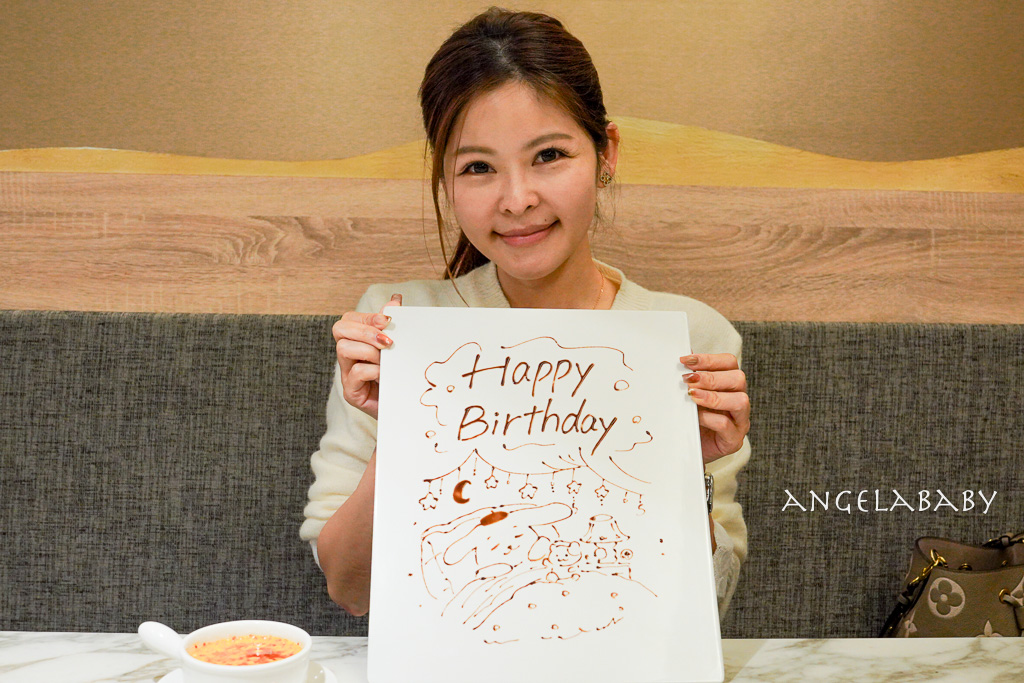 Happy
Birthday
ANGELABABY